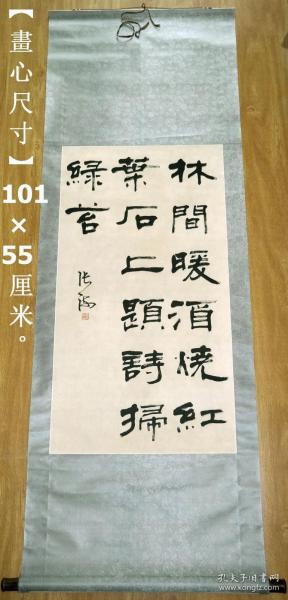 【畫心尺寸】101×55厘米。
林間暖酒燒紅
葉石上題詩掃
緑苔
张海
孔夫子旧书网
www.kongfz.com